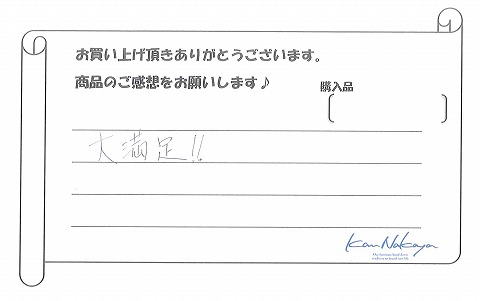 お買い上げ頂きありがとうございます。
商品のご感想をお願いします♪
購入品
大満足!!
Kan Nakaya